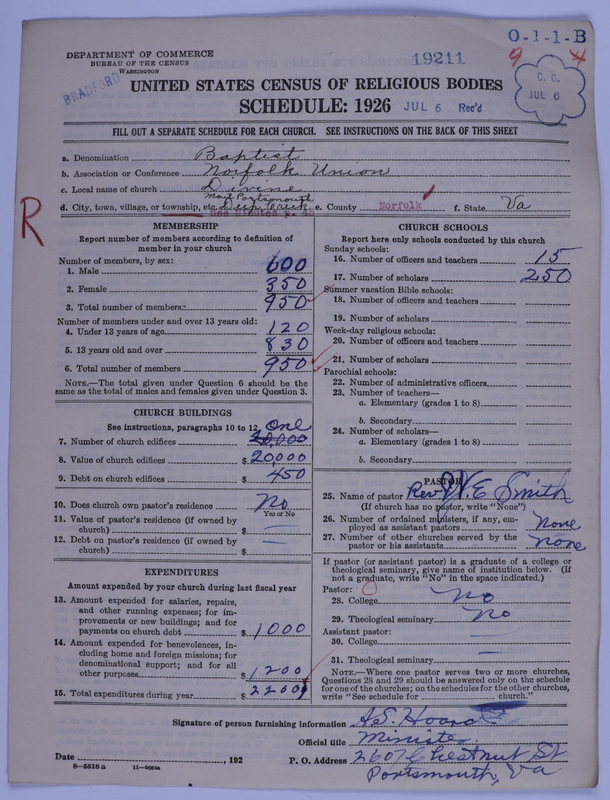 O-1-1-B
DEPARTMENT OF COMMERCE
BUREAU OF THE CENSUS
WASHINGTON
BRADFORD
19211
9 4
C. C.
JUL 6
UNITED STATES CENSUS OF RELIGIOUS BODIES
SCHEDULE: 1926 JUL 6 Rec'd
FILL OUT A SEPARATE SCHEDULE FOR EACH CHURCH. SEE INSTRUCTIONS ON THE BACK OF THIS SHEET
a. Denomination Baptist
b. Association or Conference Norfolk Union
c. Local name of church Divine
Mail Portsmouth
d. City, town, village, or township, etc. Deep Creek e. County Norfolk f. State Va
See Minutes p. 45
R
MEMBERSHIP
Report number of members according to definition of
member in your church
Number of members, by sex:
1. Male 600
2. Female 350
3. Total number of members 950
Number of members under and over 13 years old:
4. Under 13 years of age 120
5. 13 years old and over 830
6. Total number of members 950
NOTE.—The total given under Question 6 should be the
same as the total of males and females given under Question 3.
CHURCH BUILDINGS
See instructions, paragraphs 10 to 12 One
7. Number of church edifices 20,000
8. Value of church edifices $ 20,000
9. Debt on church edifices $ 450
10. Does church own pastor's residence No
Yes or No
11. Value of pastor's residence (if owned by
church) $ —
12. Debt on pastor's residence (if owned by
church) $ —
EXPENDITURES
Amount expended by your church during last fiscal year
13. Amount expended for salaries, repairs,
and other running expenses; for im-
provements or new buildings; and for
payments on church debt $ 1000
14. Amount expended for benevolences, in-
cluding home and foreign missions; for
denominational support; and for all
other purposes $ 1200
15. Total expenditures during year $ 2200
CHURCH SCHOOLS
Report here only schools conducted by this church
Sunday schools:
16. Number of officers and teachers 15
17. Number of scholars 250
Summer vacation Bible schools:
18. Number of officers and teachers
19. Number of scholars
Week-day religious schools:
20. Number of officers and teachers
21. Number of scholars
Parochial schools:
22. Number of administrative officers
23. Number of teachers—
a. Elementary (grades 1 to 8)
b. Secondary
24. Number of scholars—
a. Elementary (grades 1 to 8)
b. Secondary
PASTOR
25. Name of pastor Rev. W. E Smith
(If church has no pastor, write "None")
26. Number of ordained ministers, if any, em-
ployed as assistant pastors None
27. Number of other churches served by the
pastor or his assistants None
If pastor (or assistant pastor) is a graduate of a college or
theological seminary, give name of institution below. (If
not a graduate, write "No" in the space indicated.)
Pastor:
28. College No
29. Theological seminary No
Assistant pastor:
30. College —
31. Theological seminary —
NOTE.—Where one pastor serves two or more churches,
Questions 28 and 29 should be answered only on the schedule
for one of the churches; on the schedules for the other churches,
write "See schedule for church."
Signature of person furnishing information A.S. Hoard
Official title Minister
Date , 192 P. O. Address 2607 Chestnut St
8-5518 a 11-9064a Portsmouth, Va